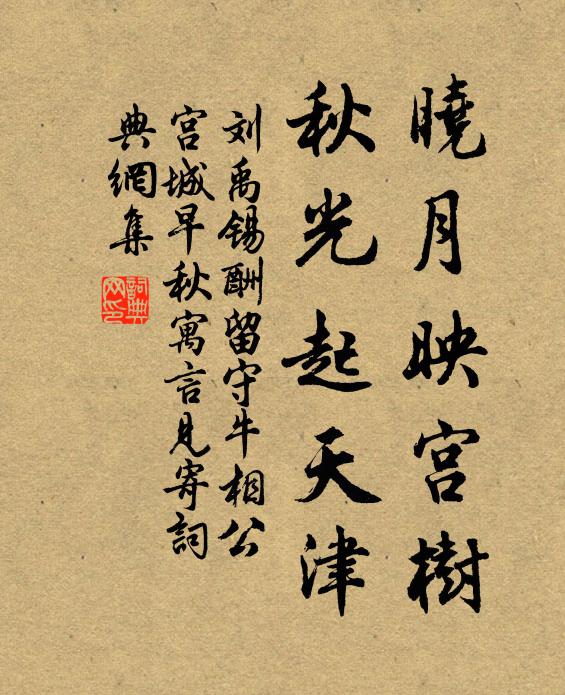 曉月映宮樹
秋光起天津
刘禹锡酬留守牛相公
宮城早秋寓言見寄詞
典網集
詞典
网印